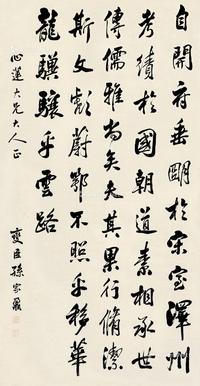 自開府垂明於宋室澤州
考績於國朝道素相承世
傳儒雅尚矣夫其果行脩潔
斯文彪蔚鄂不照乎移華
龍驥驤乎雲路
心蓮大兄大人正
燮臣孫家鼐